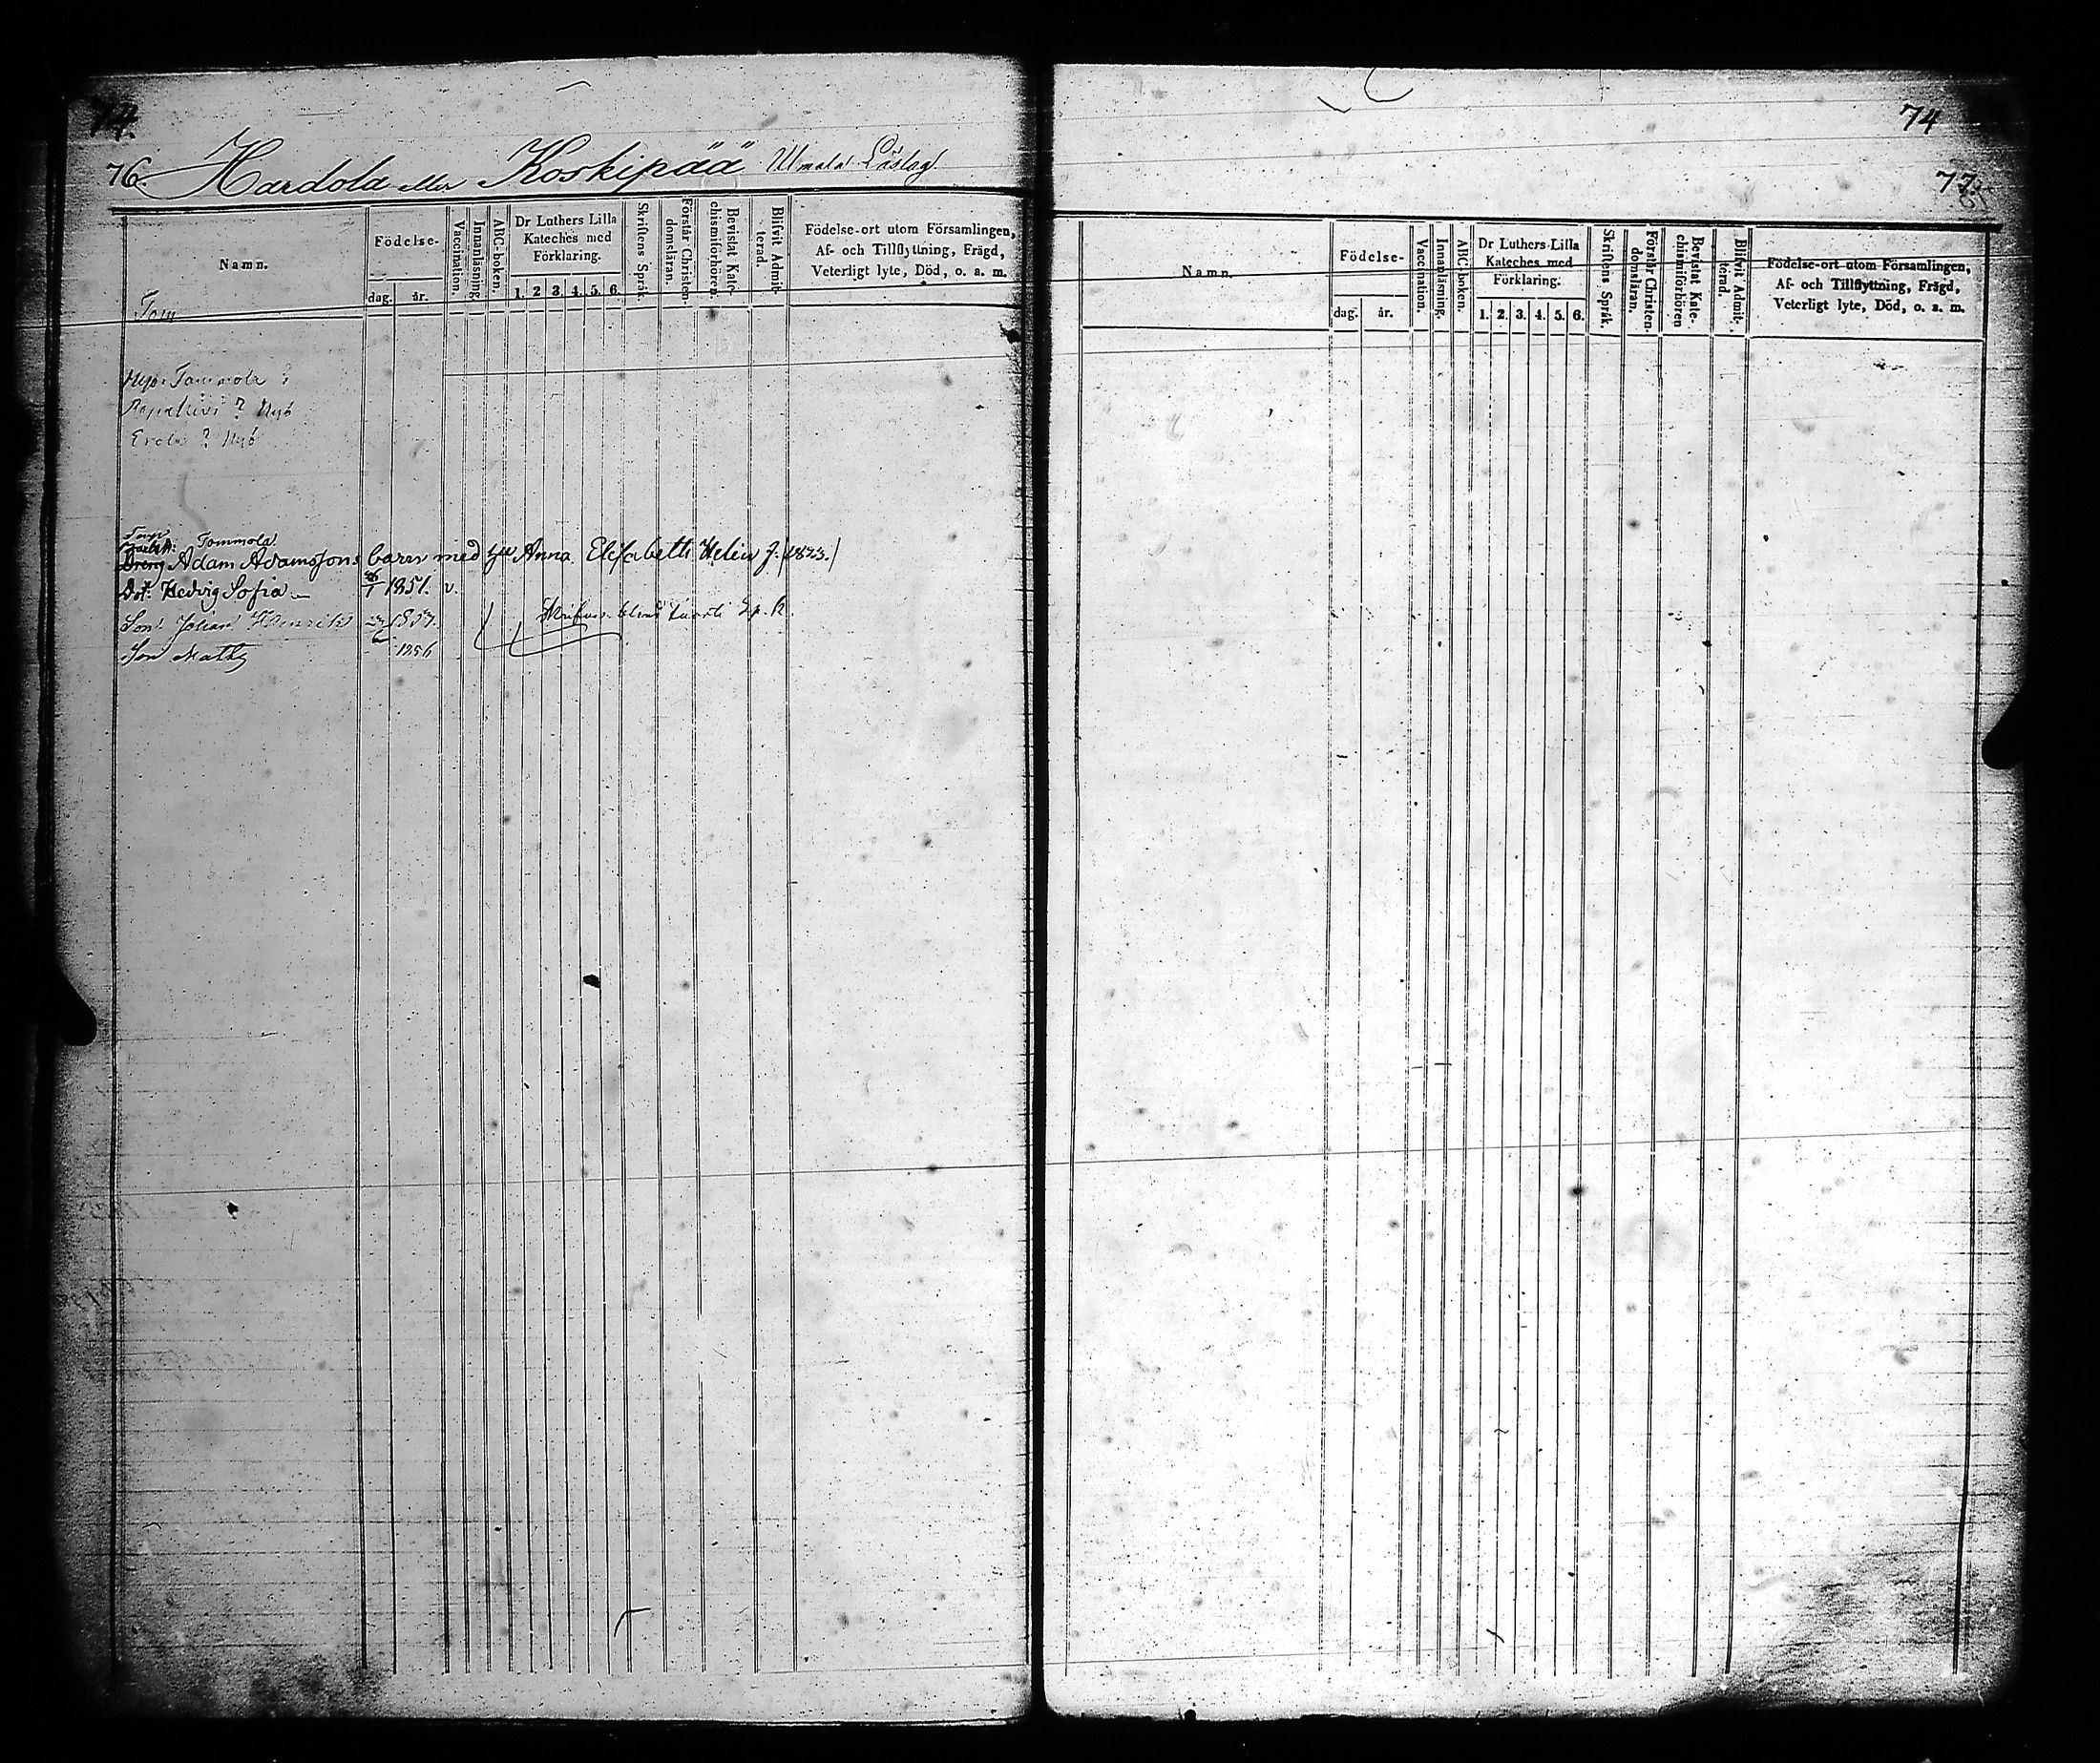 74.
76. Hardola eller Koskipää Ulmala Läslag
Namn.
Födelse-
dag.
år.
Vaccination.
Innanläsning.
ABC-boken.
Dr Luthers Lilla
Kateches med
Förklaring.
1. 2. 3. 4. 5. 6.
Skriftens Språk.
Förstår Christen-
domsläran.
Bevistat Kate-
chismiförhören.
Blifvit Admit-
terad.
Födelse-ort utom Församlingen,
Af- och Tillflyttning, Frägd,
Veterligt lyte, Död, o. s. m.
Tommola ?
? Nyb
Erola ? Nyb
Tommola
Dreng Adam Adamssons barn med Anna Elisabeth Helin f. 1823.
Dot. Hedvig Sofia 1851. v.
Son Johan Henrik
Son Matts 1856
74
77.
Namn.
Födelse-
dag.
år.
Vaccination.
Innanläsning.
ABC-boken.
Dr Luthers Lilla
Kateches med
Förklaring.
1. 2. 3. 4. 5. 6.
Skriftens Språk.
Förstår Christen-
domsläran.
Bevistat Kate-
chismiförhören
Blifvit Admit-
terad.
Födelse-ort utom Församlingen,
Af- och Tillflyttning, Frägd,
Veterligt lyte, Död, o. s. m.